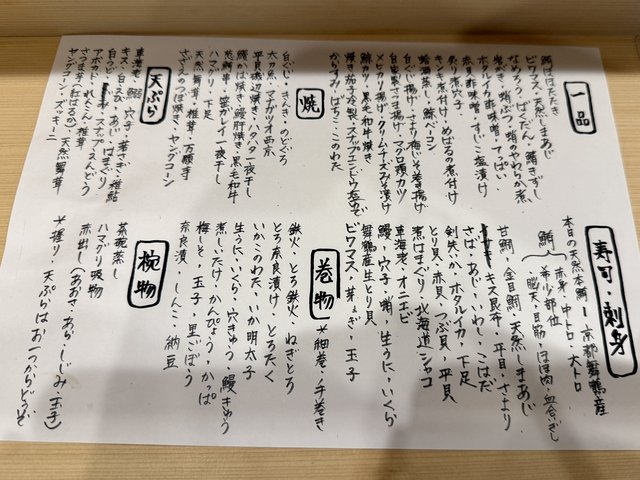 寿司・刺身
本日の天然本鮪 京都舞鶴産
鮪
赤身・中トロ・大トロ
希少部位
脳天・目筋・ほほ肉・血合いぎし
甘鯛・金目鯛・天然しまあじ
キス昆布・平目・さより
さば・あじ・いわし・こはだ
剣先いか・ホタルイカ・下足
とり貝・赤貝・つぶ貝・平貝
煮はまぐり・北海道シャコ
車海老・オニエビ
鰻・穴子・蛸・生うに・いくら
舞鶴産生とり貝
ビワマス・芽ねぎ・玉子
巻物 *細巻・手巻き
鉄火・とろ鉄火・ねぎとろ
とろ奈良漬け・とろたく
いかこのわた・いか明太子
生うに・いくら・穴きゅう・鰻きゅう
煮しいたけ・かんぴょう・かっぱ
梅しそ・玉子・里ごぼう
奈良漬・しんこ・納豆
椀物
茶碗蒸し
ハマグリ吸物
赤出し(あおさ・あら・しじみ・玉子)
*握り・天ぷらはお一つからどうぞ
一品
鯛はほたたき
ビワマス・天然しまあじ
なめろう・ばくだん・鯖きずし
岩がき・蛸ぶつ・蛸のやわらか煮
ホタルイカ酢味噌・てっぱい
赤貝酢味噌・すじこ塩漬け
炙り煮穴子
キンキ煮付け・めばるの煮付け
蛤酒蒸し・鯨ベーコン
白ぐじ揚げ・さより梅しそ巻き揚げ
自家製さつま揚げ・マグロ頭カツ
メヒカリ揚げ・クリームチーズみそ漬け
鯨カツ・黒毛和牛焼き
焼茄子冷製・スナップエンドウ塩ゆで
からすみ・ばちこ・このわた
焼
白ぐじ・きんき・のどぐろ
太刀魚・マナガツオ西京
平貝磯辺焼き・ハタハタ一夜干し
鰻くば焼き・鰻肝焼き・黒毛和牛
葱鮪串・笹ガレイ一夜干し
ハマグリ・下足
天然舞茸・椎茸・万願寺
さざえのつぼ焼き・ヤングコーン
天ぷら
車海老・鱚・穴子・若さぎ・稚鮎
キス・白えび・あじ・はまぐり
白うど・スナップえんどう
アボカド・れんこん・椎茸
ヤングコーン・ズッキーニ